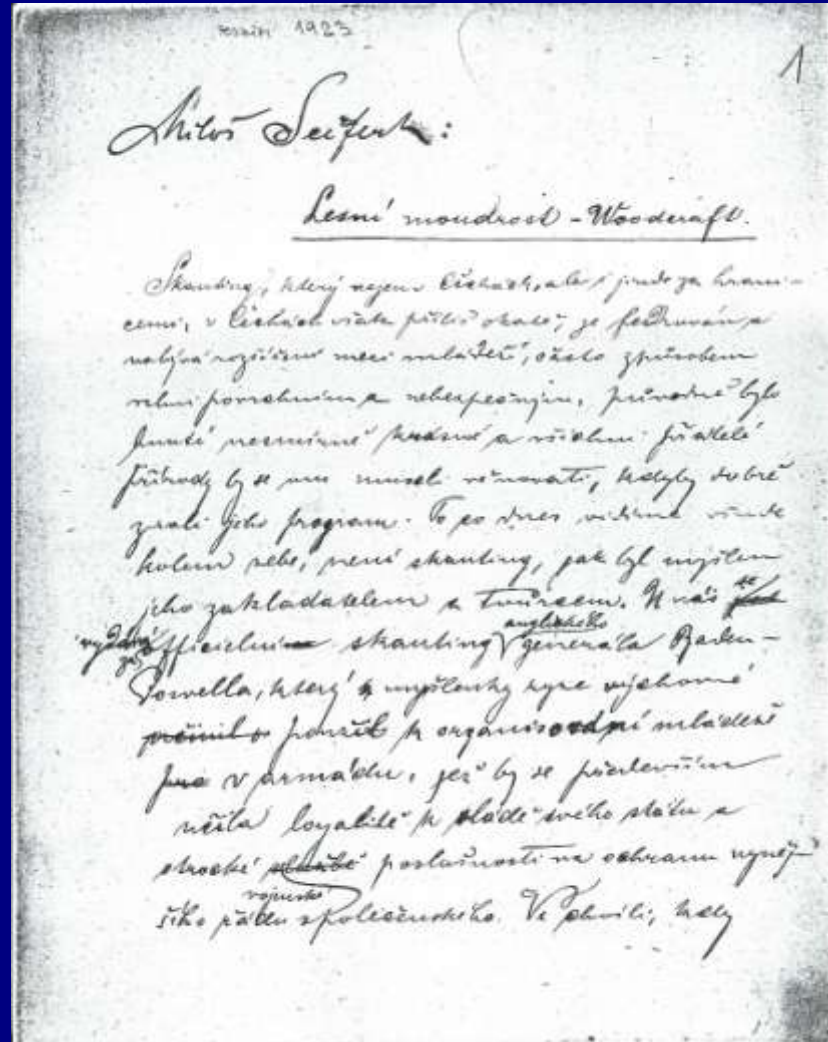 1923
1
Miloš Seifert:
Lesní moudrost – Woodcraft.
Skauting, který nejen v Čechách, ale i jinde za hrani-
cemi, v Čechách však příliš okatě, je fedrován a
nabývá rozšíření mezi mládeží, často způsobem
velmi povrchním a nebezpečným, původně bylo
hnutí nesmírně krásné a všichni přátelé
přírody by se mu museli věnovati, kdyby dobře
znali jeho program. To co dnes vidíme všude
kolem sebe, není skauting, jak byl myšlen
jeho zakladatelem a tvůrcem. U nás se
vydává za officielní skauting anglického generála Baden-
Powella, který myšlenky ryze výchovné
použil k organisování mládeže
v armádu, jež by se především
učila loyalitě k vládě svého státu a
otrocké vojenské poslušnosti na ochranu nyněj-
šího řádu společenského. Ve chvíli, kdy